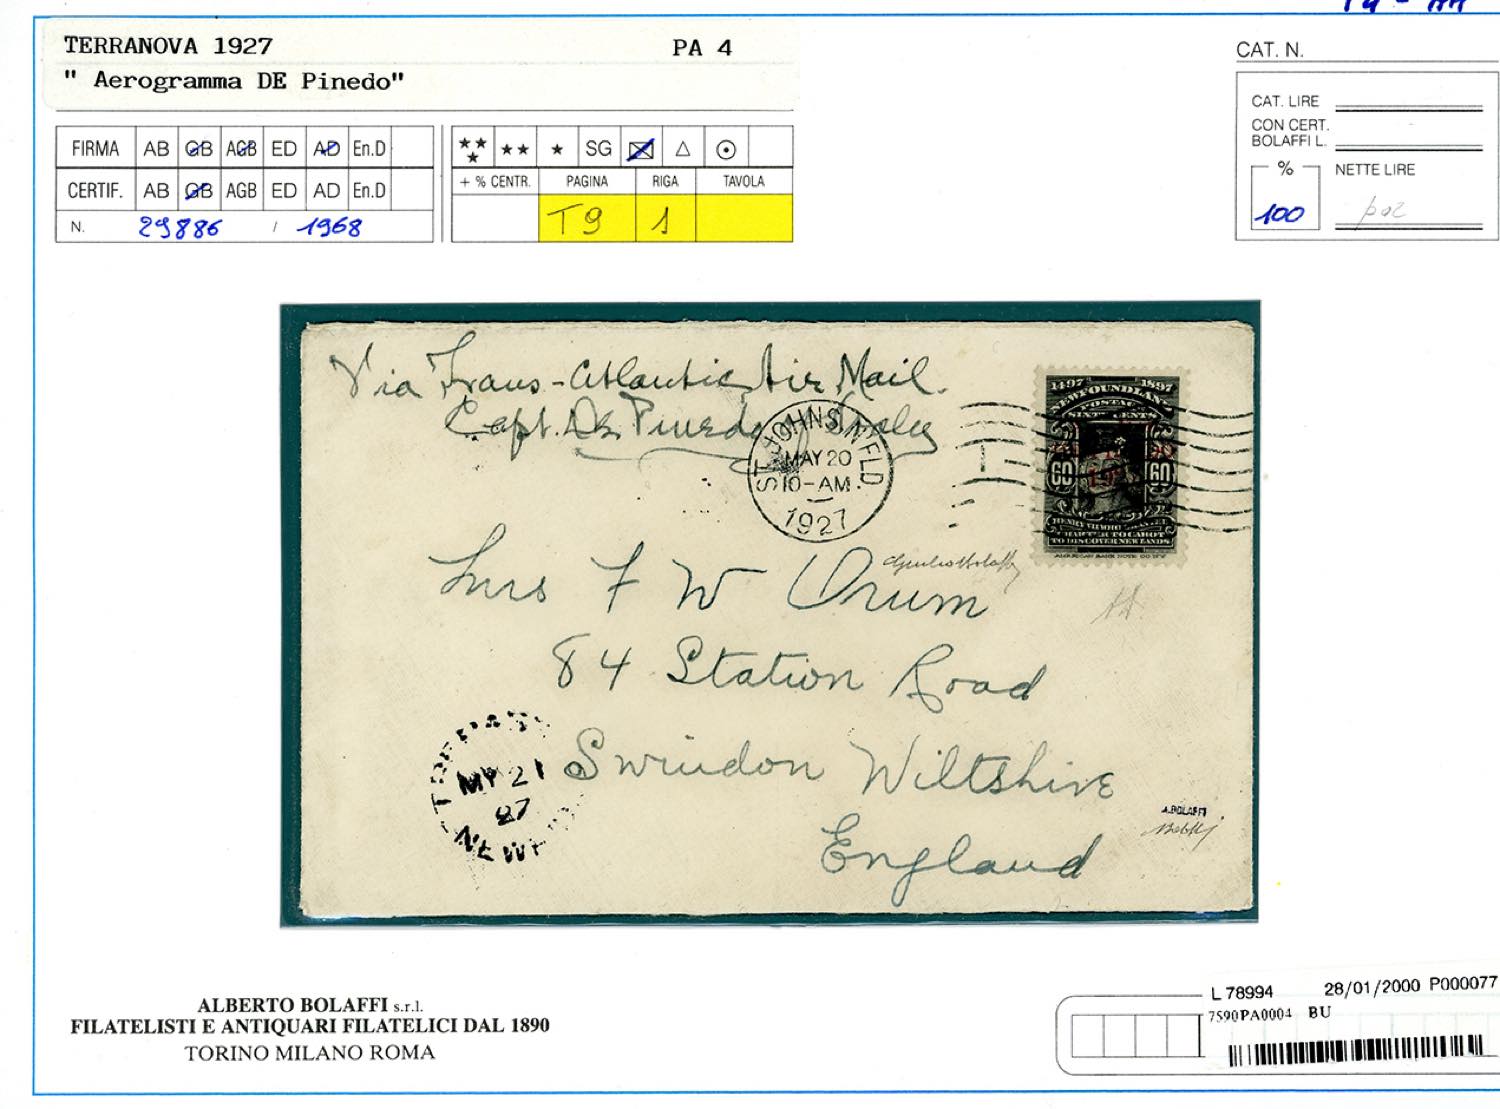 TERRANOVA 1927 PA 4
" Aerogramma DE Pinedo"
CAT. N.
CAT. LIRE
CON CERT.
BOLAFFI L.
% NETTE LIRE
100
FIRMA AB GB AGB ED AD En.D
CERTIF. AB GB AGB ED AD En.D
N. 29886 / 1968
★★★ ★★ ★ SG
+ % CENTR. PAGINA RIGA TAVOLA
T9 1
Via Trans-Atlantic Air Mail.
Capt. De Pinedo Italy
ST. JOHN'S N'FLD
MAY 20
10-AM.
1927
1497 1897
NEWFOUNDLAND
POSTAGE
SIXTY CENTS
60 60
TO DISCOVER NEW LANDS
Giulio Bolaffi
Mrs F W Drum
84 Station Road
Swindon Wiltshire
England
MY 21
27
NEWF
A.BOLAFFI
ALBERTO BOLAFFI s.r.l.
FILATELISTI E ANTIQUARI FILATELICI DAL 1890
TORINO MILANO ROMA
L 78994 28/01/2000 P000077
7590PA0004 BU